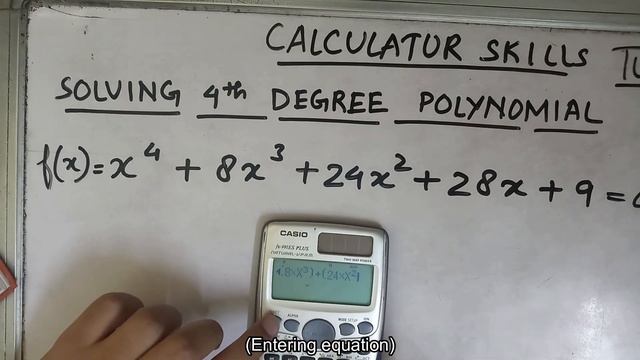 CALCULATOR SKILLS
SOLVING 4th DEGREE POLYNOMIAL
f(x)=x⁴ + 8x³ + 24x² + 28x + 9 =
CASIO
fx-991ES PLUS
NATURAL-V.P.A.M.
TWO WAY POWER
+(8×X³)+(24×X²
ALPHA
MODE SETUP
ON
(Entering equation)